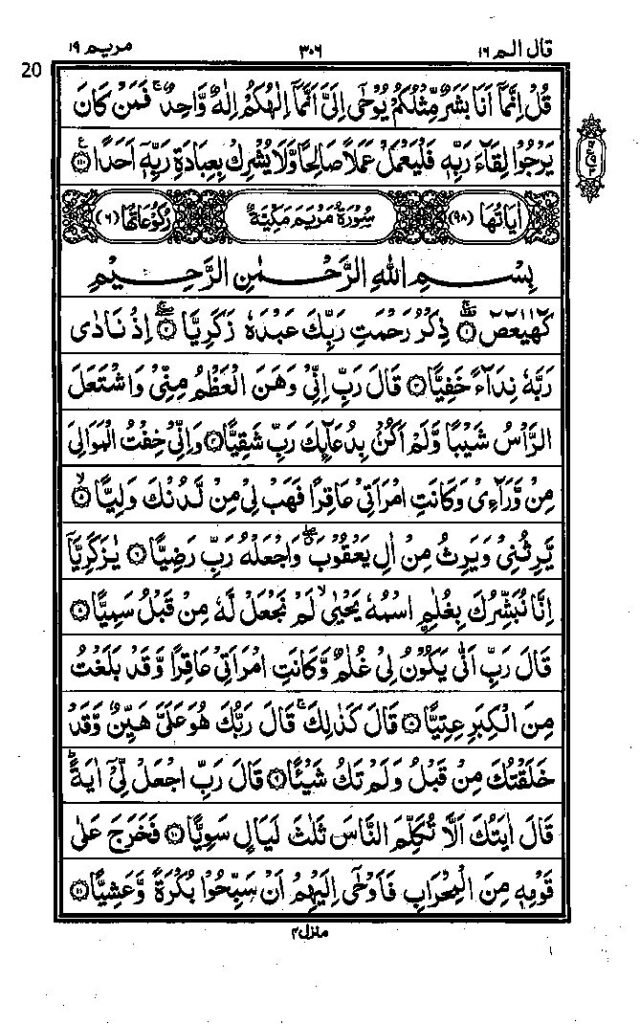 قال الم ١٦ ٣٠٦ مريم ١٩
20
قُلْ اِنَّمَاۤ اَنَا بَشَرٌ مِّثْلُكُمْ يُوْحٰۤى اِلَيَّ اَنَّمَاۤ اِلٰهُكُمْ اِلٰهٌ وَّاحِدٌ ۚ فَمَنْ كَانَ
يَرْجُوْا لِقَآءَ رَبِّهٖ فَلْيَعْمَلْ عَمَلًا صَالِحًا وَّلَا يُشْرِكْ بِعِبَادَةِ رَبِّهٖۤ اَحَدًا ﴿١١٠﴾ ع
اٰيَاتُهَا (٩٨) سُوْرَةُ مَرْيَمَ مَكِّيَّةٌ رُكُوْعَاتُهَا (٦)
بِسْمِ اللّٰهِ الرَّحْمٰنِ الرَّحِيْمِ
كٓهٰيٰعٓصٓ ﴿١﴾ ذِكْرُ رَحْمَتِ رَبِّكَ عَبْدَهٗ زَكَرِيَّا ﴿٢﴾ اِذْ نَادٰى
رَبَّهٗ نِدَآءً خَفِيًّا ﴿٣﴾ قَالَ رَبِّ اِنِّيْ وَهَنَ الْعَظْمُ مِنِّيْ وَاشْتَعَلَ
الرَّاْسُ شَيْبًا وَّلَمْ اَكُنْۢ بِدُعَآئِكَ رَبِّ شَقِيًّا ﴿٤﴾ وَاِنِّيْ خِفْتُ الْمَوَالِيَ
مِنْ وَّرَآءِيْ وَكَانَتِ امْرَاَتِيْ عَاقِرًا فَهَبْ لِيْ مِنْ لَّدُنْكَ وَلِيًّا ۙ﴿٥﴾
يَّرِثُنِيْ وَيَرِثُ مِنْ اٰلِ يَعْقُوْبَ ۖ وَاجْعَلْهُ رَبِّ رَضِيًّا ﴿٦﴾ يٰزَكَرِيَّاۤ
اِنَّا نُبَشِّرُكَ بِغُلٰمِ ۨ اسْمُهٗ يَحْيٰى ۙ لَمْ نَجْعَلْ لَّهٗ مِنْ قَبْلُ سَمِيًّا ﴿٧﴾
قَالَ رَبِّ اَنّٰى يَكُوْنُ لِيْ غُلٰمٌ وَّكَانَتِ امْرَاَتِيْ عَاقِرًا وَّقَدْ بَلَغْتُ
مِنَ الْكِبَرِ عِتِيًّا ﴿٨﴾ قَالَ كَذٰلِكَ ۚ قَالَ رَبُّكَ هُوَ عَلَيَّ هَيِّنٌ وَّقَدْ
خَلَقْتُكَ مِنْ قَبْلُ وَلَمْ تَكُ شَيْـًٔا ﴿٩﴾ قَالَ رَبِّ اجْعَلْ لِّيْۤ اٰيَةً ؕ
قَالَ اٰيَتُكَ اَلَّا تُكَلِّمَ النَّاسَ ثَلٰثَ لَيَالٍ سَوِيًّا ﴿١٠﴾ فَخَرَجَ عَلٰى
قَوْمِهٖ مِنَ الْمِحْرَابِ فَاَوْحٰۤى اِلَيْهِمْ اَنْ سَبِّحُوْا بُكْرَةً وَّعَشِيًّا ﴿١١﴾
منزل ٤